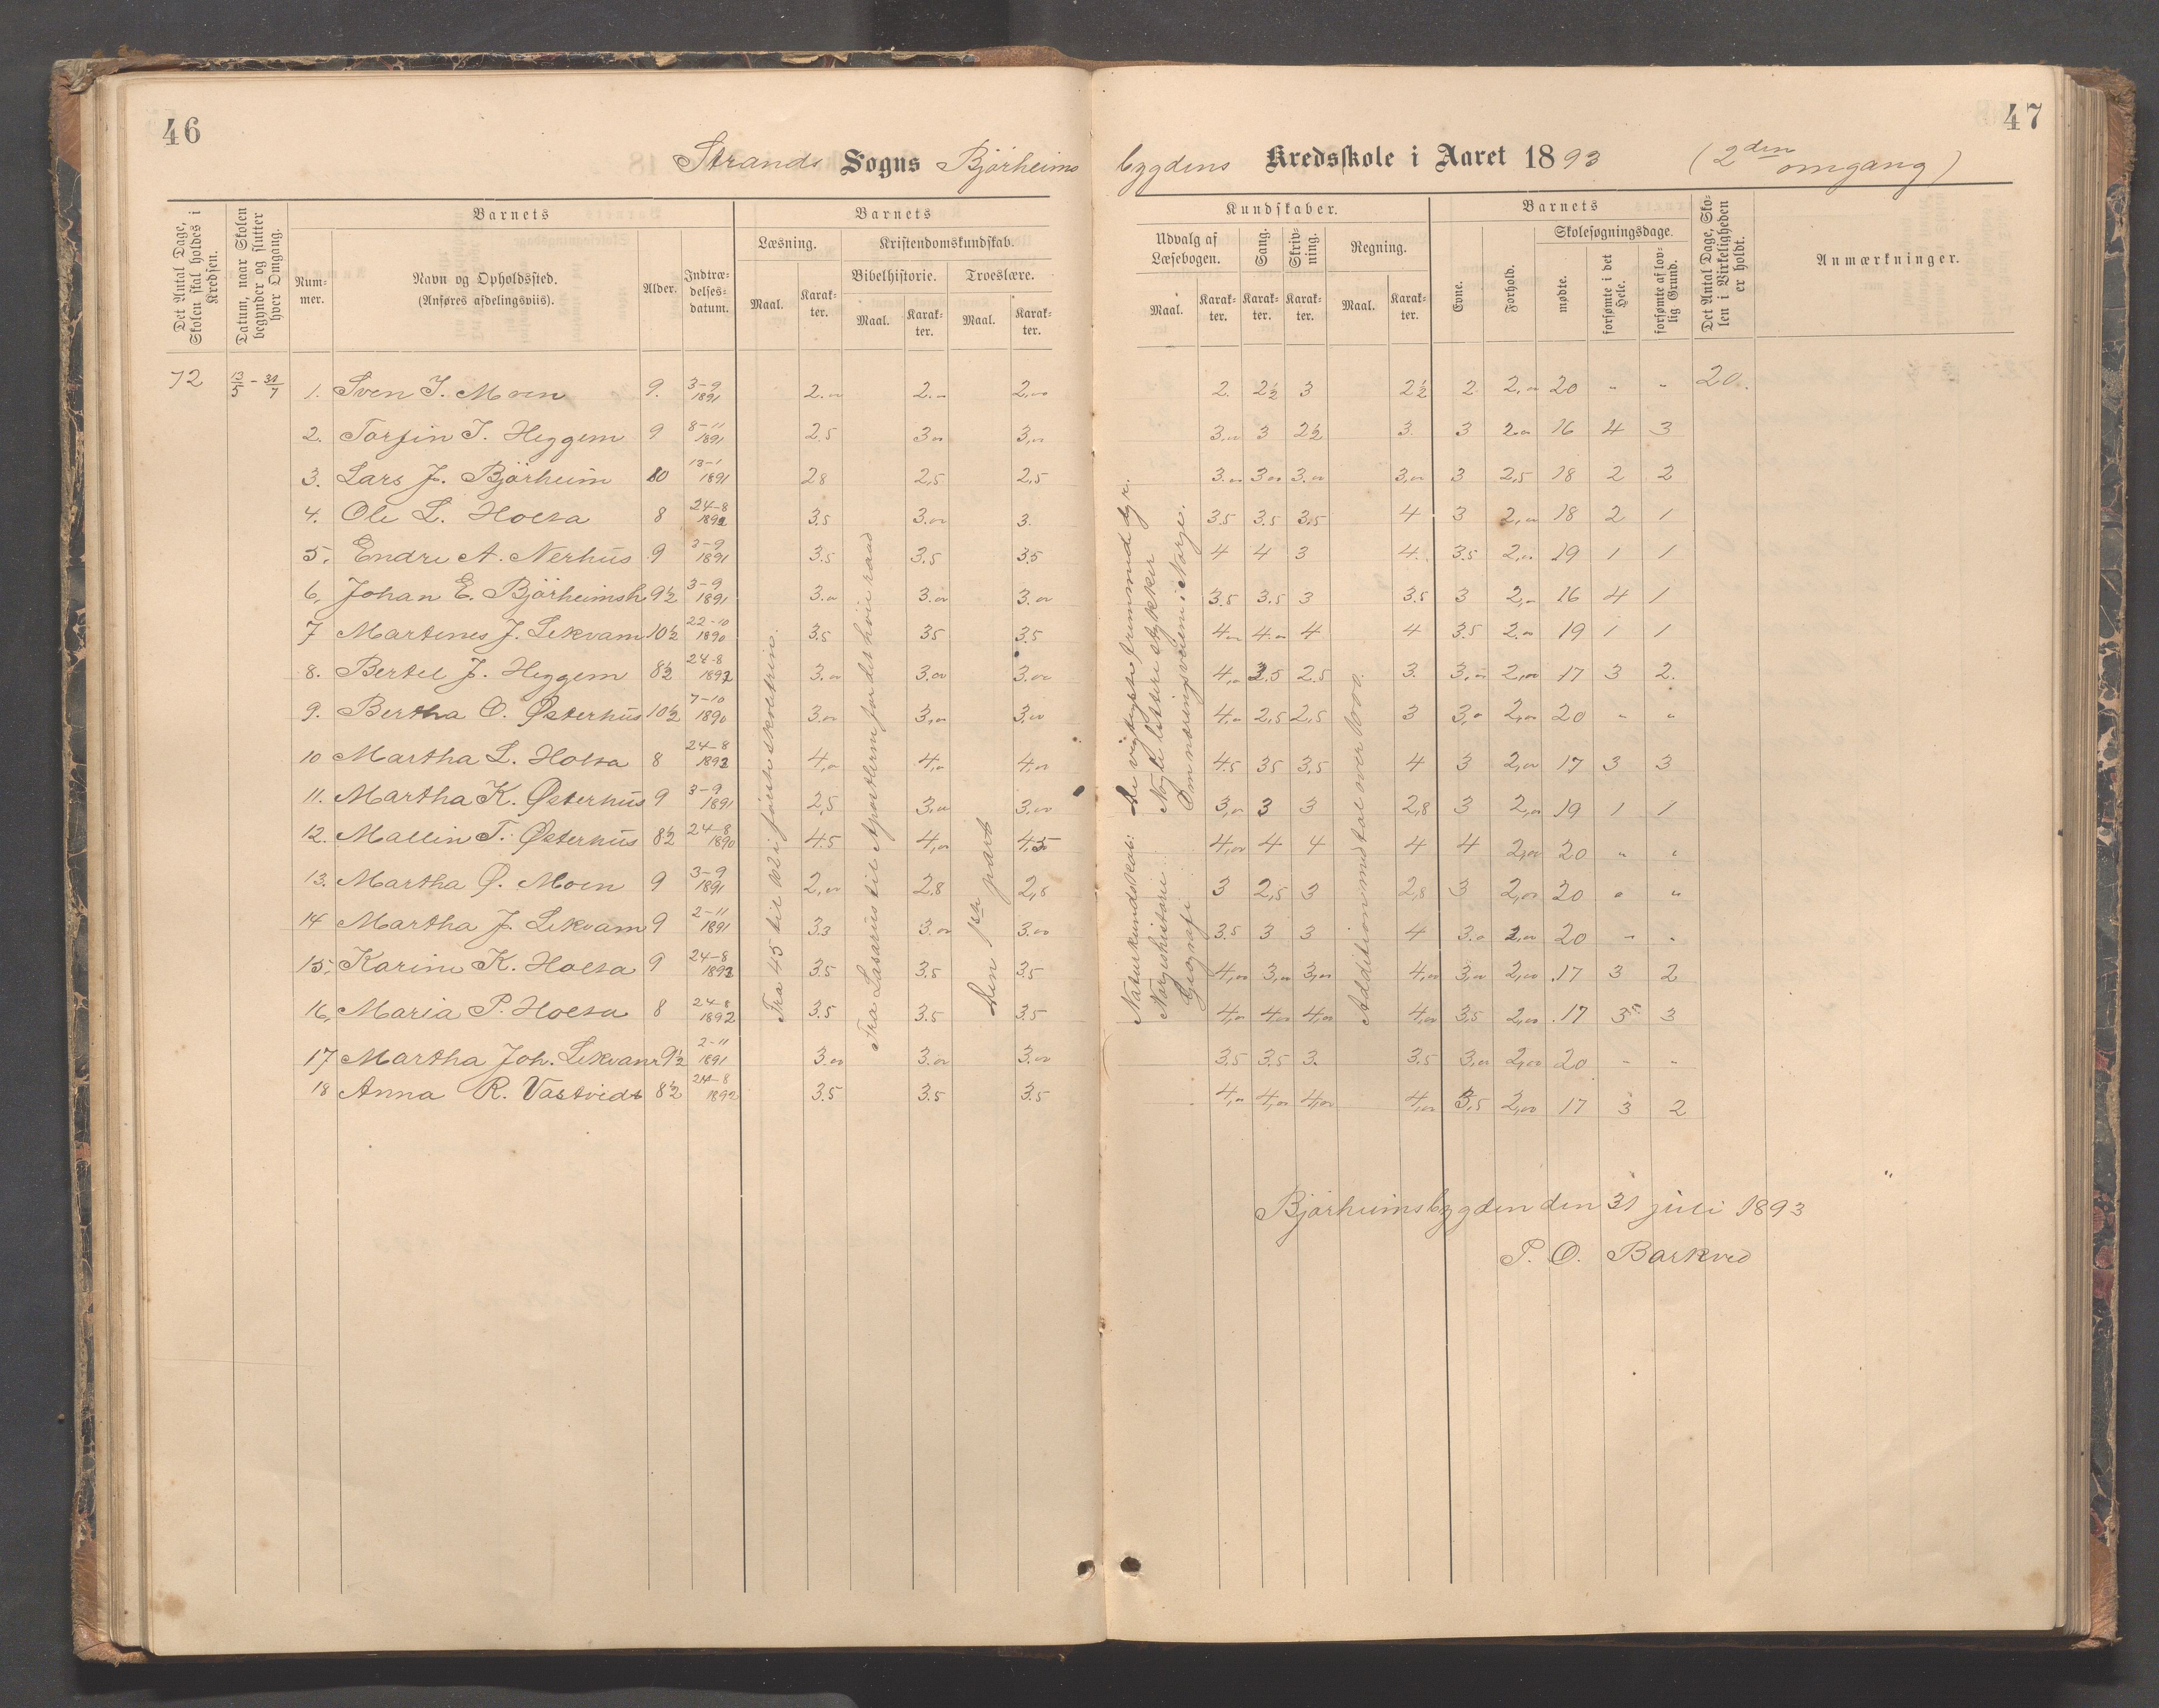 46
47
Strands Sogns Bjørheims bygdens Kredsskole i Aaret 1893 (2den omgang)
Det Antal Dage, Skolen skal holdes i Kredsen.
Datum, naar Skolen begynder og slutter hver Omgang.
Barnets
Nummer.
Navn og Opholdssted. (Anføres afdelingsviis).
Alder.
Indtrædelsesdatum.
Barnets
Læsning.
Maal.
Karakter.
Kristendomskundskab.
Bibelhistorie.
Maal.
Karakter.
Troeslære.
Maal.
Karakter.
Kundskaber.
Udvalg af Læsebogen.
Maal.
Karakter.
Sang.
Karakter.
Skrivning.
Karakter.
Regning.
Maal.
Karakter.
Barnets
Evne.
Forhold.
Skolesøgningsdage.
mødte.
forsømte i det Hele.
forsømte af lovlig Grund.
Det Antal Dage, Skolen i Virkeligheden er holdt.
Anmærkninger.
72 13/5 - 31/7 1. Sven I. Moen 9. 3-9 1891 2.00 2.00 2,00 2. 2½ 3 2½ 2 2,00 20 " " 20.
2. Torfin T. Heggem 9 8-11 1891 2.5 3.00 3,00 3.00 3 2½ 3. 3 2.00 16 4 3
3. Lars J. Bjørheim 10 13-1 1891 28 2,5 2,5 3.00 3.00 3.00 3,00 3 2,5 18 2 2
4. Ole L. Holta 8 24-8 1892 3.5 3.00 3. 3.5 3.5 3.5 4 3 2,00 18 2 1
5. Endre A. Nerhus 9 3-9 1891 3.5 3.5 3.5 4 4 3 4. 3.5 2,00 19 1 1
6. Johan E. Bjørheimsh 9½ 3-9 1891 3.00 3.00 3.00 3.5 3.5 3 3.5 3 2,00 16 4 1
7 Martines J. Lekvam 10½ 22-10 1890 3.5 35 3.5 4.00 4.00 4 4 3.5 2.00 19 1 1
8. Bertel J. Heggem 8½ 24-8 1892 3.00 3.00 3.00 4,00 2.5 2.5 3. 3.00 2,00 17 3 2.
9. Bertha O. Østerhus 10½ 7-10 1890 3.00 3,00 3,00 4.00 2,5 2,5 3 3,0 2,00 20 " "
10 Martha L. Holta 8 24-8 1892 4,00 4,00 4,00 4.5 35 3.5 4 3 2,00 17 3 3
11. Martha K. Østerhus 9 3-9 1891 2,5 3,00 3,00 3,00 3 3 2,8 3 2,00 19 1 1
12. Mallin T. Østerhus 8½ 24-8 1890 4.5 4,00 4,5 4,00 4 4 4 4 2,00 20 " "
13. Martha Ø. Moen 9 3-9 1891 2,00 2.8 2,8 3 2,5 3 2,8 3 2,00 20 " "
14 Martha J. Lekvam 9 2-11 1891 3.3 3.00 3.00 3.5 3 3 4 3.0 2,00 20 " "
15. Karine K. Holta 9 24-8 1892 3.5 3.5 3.5 4,00 3,00 3,00 4,00 3,00 2,00 17 3 2
16, Maria P. Holta 8 24-8 1892 3.5 3.5 3.5 4,00 4,00 4,00 4,00 3,5 2,00 17 3 3
17 Martha Joh. Lekvam 9½ 2-11 1891 3.00 3.00 3.00 3.5 3.5 3. 3.5 3,00 2,00 20 " "
18 Anna R. Vastveds 8½ 24-8 1892 3.5 3.5 3.5 4,00 4,00 4,00 4,00 3,5 2,00 17 3 2
Fra Lasarus til Apostlerne for det høie raad
Den 1ste part
Naturkundskab: De vigtigste fremmed dyr.
Norgeshistorie Nogle lettere stykker
Geografi Om næringsveiene i Norge.
Addition med tal over 1000.
Bjørheimsbygden den 31 juli 1893
P. O. Barkved